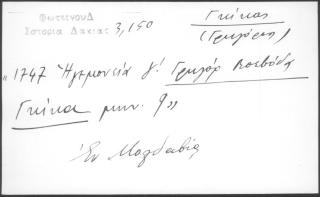 Γκίκας
Φωτεινού Δ
Ιστορία Δακίας 3,150
(Γρηγόρης)
"1747 Ἡγεμονεία γ'. Γρηγόρ Βοεβόδα
Γκίκα μην. 9"
Ἐν Μολδαβίᾳ